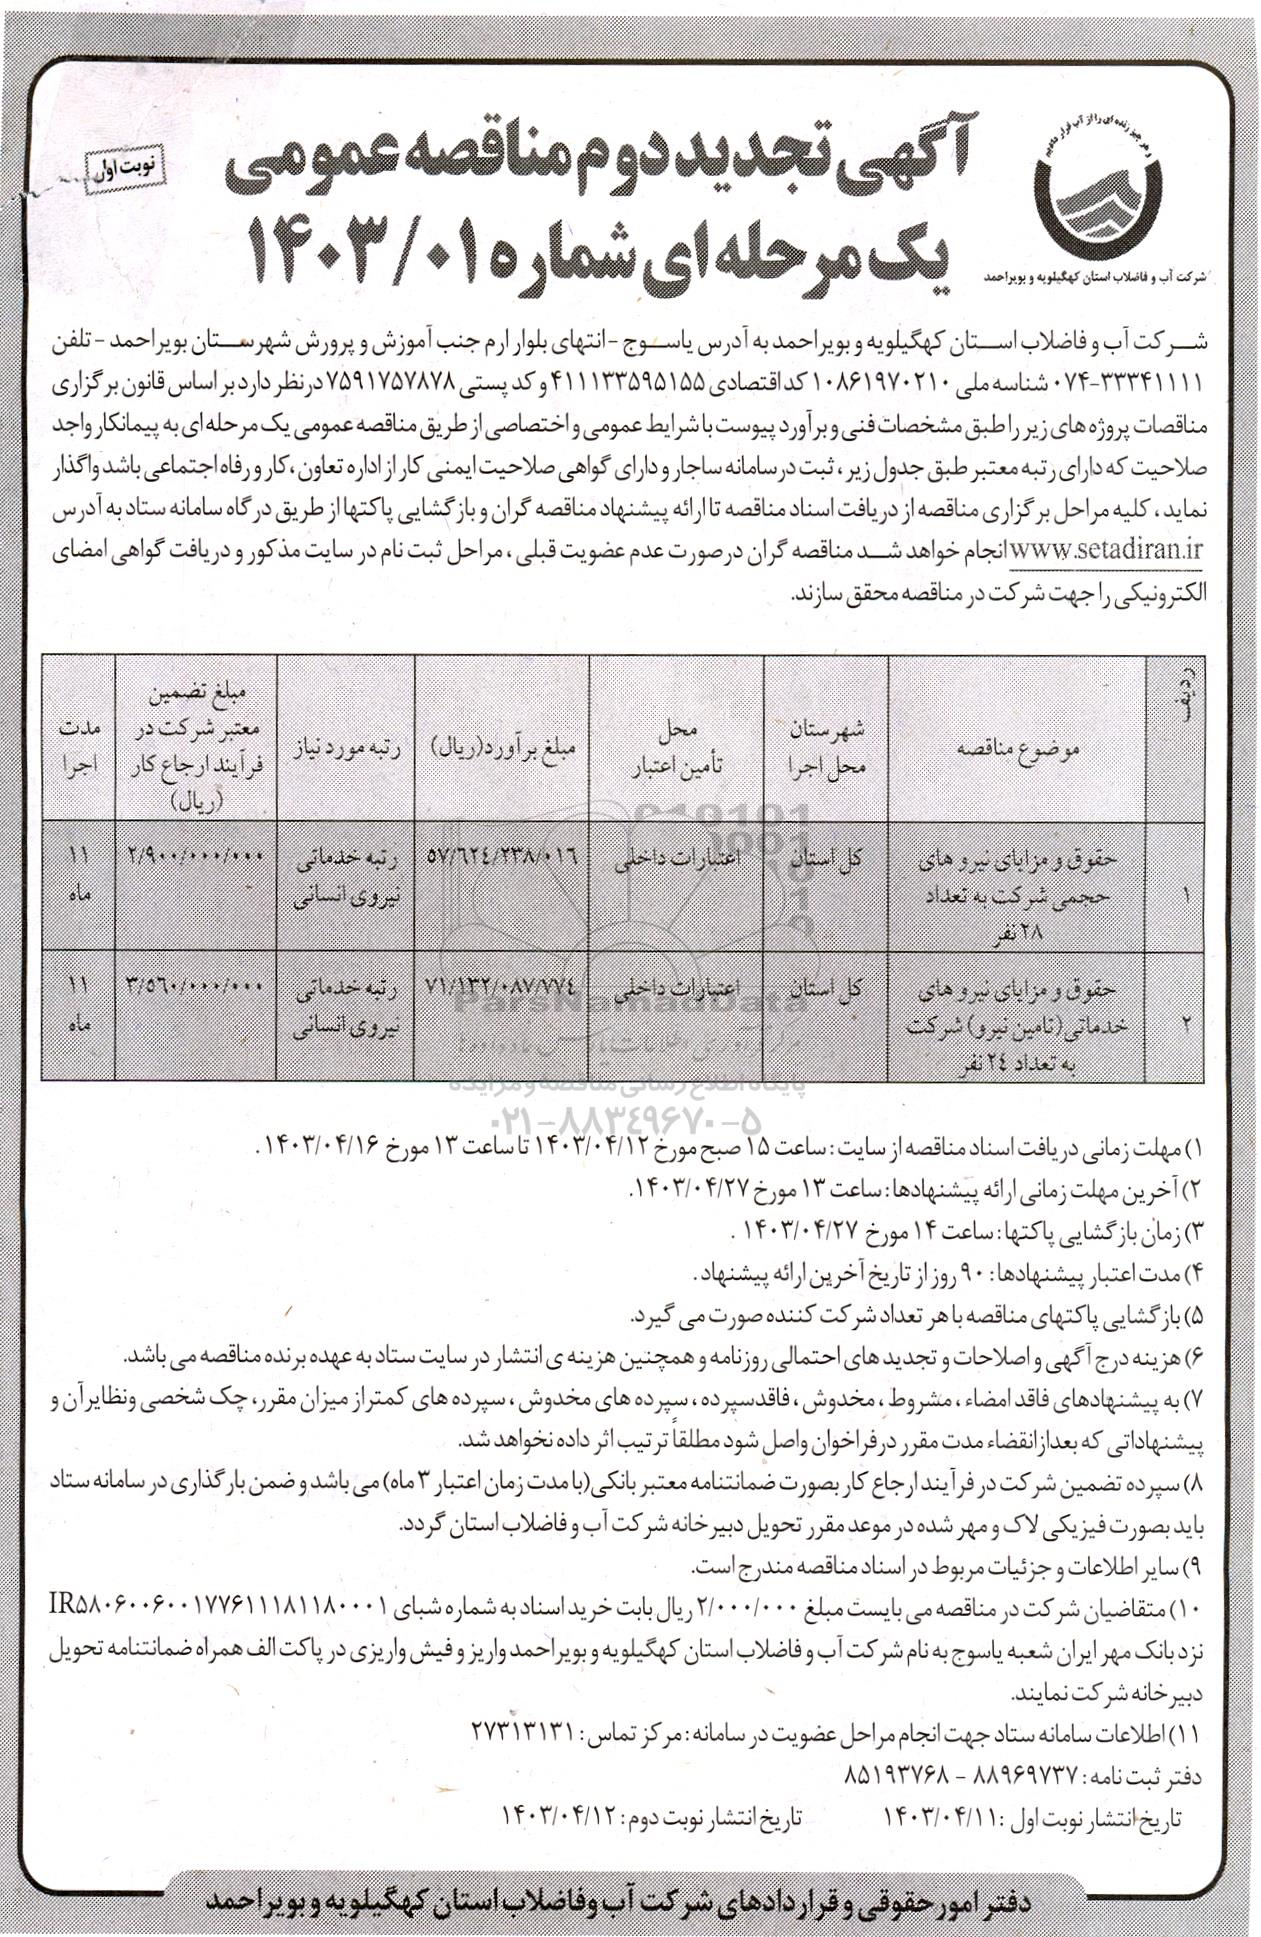 و هر چیز زنده ای را از آب قرار دادیم
شرکت آب و فاضلاب استان کهگیلویه و بویراحمد
آگهی تجدید دوم مناقصه عمومی
یک مرحله ای شماره ۱۴۰۳/۰۱
نوبت اول
شرکت آب و فاضلاب استان کهگیلویه و بویراحمد به آدرس یاسوج -انتهای بلوار ارم جنب آموزش و پرورش شهرستان بویراحمد -تلفن
۰۷۴-۳۳۳۴۱۱۱۱ شناسه ملی ۱۰۸۶۱۹۷۰۲۱۰ کد اقتصادی ۴۱۱۱۳۳۵۹۵۱۵۵ و کد پستی ۷۵۹۱۷۵۷۸۷۸ درنظر دارد بر اساس قانون برگزاری
مناقصات پروژه های زیر را طبق مشخصات فنی و برآورد پیوست با شرایط عمومی و اختصاصی از طریق مناقصه عمومی یک مرحله ای به پیمانکار واجد
صلاحیت که دارای رتبه معتبر طبق جدول زیر ، ثبت در سامانه ساجار و دارای گواهی صلاحیت ایمنی کار از اداره تعاون ،کار و رفاه اجتماعی باشد واگذار
نماید ، کلیه مراحل برگزاری مناقصه از دریافت اسناد مناقصه تا ارائه پیشنهاد مناقصه گران و بازگشایی پاکتها از طریق درگاه سامانه ستاد به آدرس
www.setadiran.ir انجام خواهد شد مناقصه گران در صورت عدم عضویت قبلی ، مراحل ثبت نام در سایت مذکور و دریافت گواهی امضای
الکترونیکی را جهت شرکت در مناقصه محقق سازند.
ردیف | موضوع مناقصه | شهرستان محل اجرا | محل تأمین اعتبار | مبلغ برآورد(ریال) | رتبه مورد نیاز | مبلغ تضمین معتبر شرکت در فرآیند ارجاع کار (ریال) | مدت اجرا
۱ | حقوق و مزایای نیرو های حجمی شرکت به تعداد ۲۸ نفر | کل استان | اعتبارات داخلی | ۵۷/۶۲٤/۲۳۸/۰۱۶ | رتبه خدماتی نیروی انسانی | ۲/۹۰۰/۰۰۰/۰۰۰ | ۱۱ ماه
۲ | حقوق و مزایای نیرو های خدماتی(تامین نیرو) شرکت به تعداد ۲٤ نفر | کل استان | اعتبارات داخلی | ۷۱/۱۳۲/۰۸۷/۷۷٤ | رتبه خدماتی نیروی انسانی | ۳/۵۶۰/۰۰۰/۰۰۰ | ۱۱ ماه
ParsNamadData
پایگاه اطلاع رسانی مناقصه و مزایده
۰۲۱-۸۸۳٤۹۶۷۰-۵
۱) مهلت زمانی دریافت اسناد مناقصه از سایت : ساعت ۱۵ صبح مورخ ۱۴۰۳/۰۴/۱۲ تا ساعت ۱۳ مورخ ۱۴۰۳/۰۴/۱۶ .
۲) آخرین مهلت زمانی ارائه پیشنهادها : ساعت ۱۳ مورخ ۱۴۰۳/۰۴/۲۷.
۳) زمان بازگشایی پاکتها : ساعت ۱۴ مورخ ۱۴۰۳/۰۴/۲۷ .
۴) مدت اعتبار پیشنهادها : ۹۰ روز از تاریخ آخرین ارائه پیشنهاد .
۵) بازگشایی پاکتهای مناقصه با هر تعداد شرکت کننده صورت می گیرد.
۶) هزینه درج آگهی و اصلاحات و تجدید های احتمالی روزنامه و همچنین هزینه ی انتشار در سایت ستاد به عهده برنده مناقصه می باشد.
۷) به پیشنهادهای فاقد امضاء ، مشروط ، مخدوش ، فاقد سپرده ، سپرده های مخدوش ، سپرده های کمتر از میزان مقرر، چک شخصی ونظایر آن و
پیشنهاداتی که بعد از انقضاء مدت مقرر در فراخوان واصل شود مطلقاً ترتیب اثر داده نخواهد شد.
۸) سپرده تضمین شرکت در فرآیند ارجاع کار بصورت ضمانتنامه معتبر بانکی(با مدت زمان اعتبار ۳ ماه) می باشد و ضمن بارگذاری در سامانه ستاد
باید بصورت فیزیکی لاک و مهر شده در موعد مقرر تحویل دبیرخانه شرکت آب و فاضلاب استان گردد.
۹) سایر اطلاعات و جزئیات مربوط در اسناد مناقصه مندرج است.
۱۰) متقاضیان شرکت در مناقصه می بایست مبلغ ۲/۰۰۰/۰۰۰ ریال بابت خرید اسناد به شماره شبای IR۵۸۰۶۰۰۶۰۰۱۷۷۶۱۱۱۸۱۱۸۰۰۰۱
نزد بانک مهر ایران شعبه یاسوج به نام شرکت آب و فاضلاب استان کهگیلویه و بویراحمد واریز و فیش واریزی در پاکت الف همراه ضمانتنامه تحویل
دبیرخانه شرکت نمایند.
۱۱) اطلاعات سامانه ستاد جهت انجام مراحل عضویت در سامانه : مرکز تماس : ۲۷۳۱۳۱۳۱
دفتر ثبت نامه : ۸۸۹۶۹۷۳۷ - ۸۵۱۹۳۷۶۸
تاریخ انتشار نوبت اول : ۱۴۰۳/۰۴/۱۱ تاریخ انتشار نوبت دوم : ۱۴۰۳/۰۴/۱۲
دفتر امور حقوقی و قراردادهای شرکت آب وفاضلاب استان کهگیلویه و بویراحمد